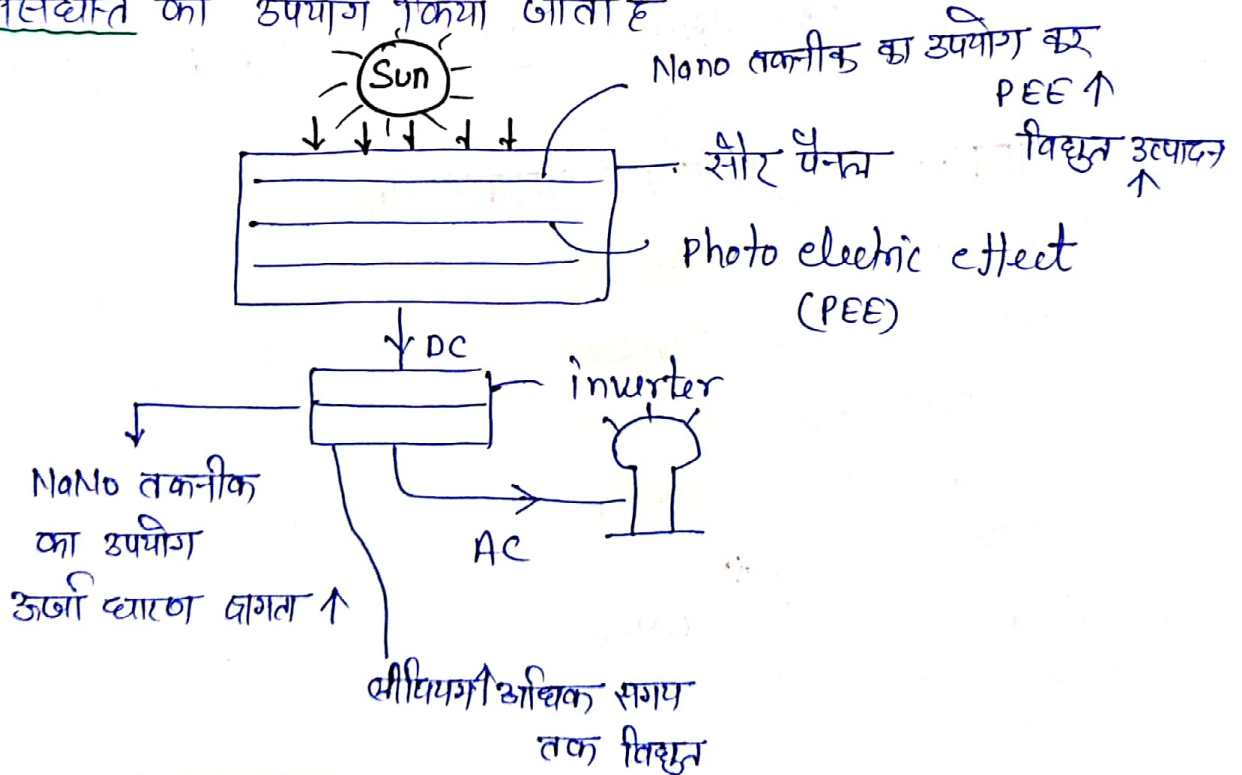 सिद्धान्त का उपयोग किया जाता है
Sun
Nano तकनीक का उपयोग कर
PEE ↑
विद्युत उत्पादन ↑
सौर पैनल
Photo electric effect
(PEE)
DC
inverter
NaNo तकनीक
का उपयोग
ऊर्जा धारण क्षमता ↑
AC
अधिक समय
तक विद्युत